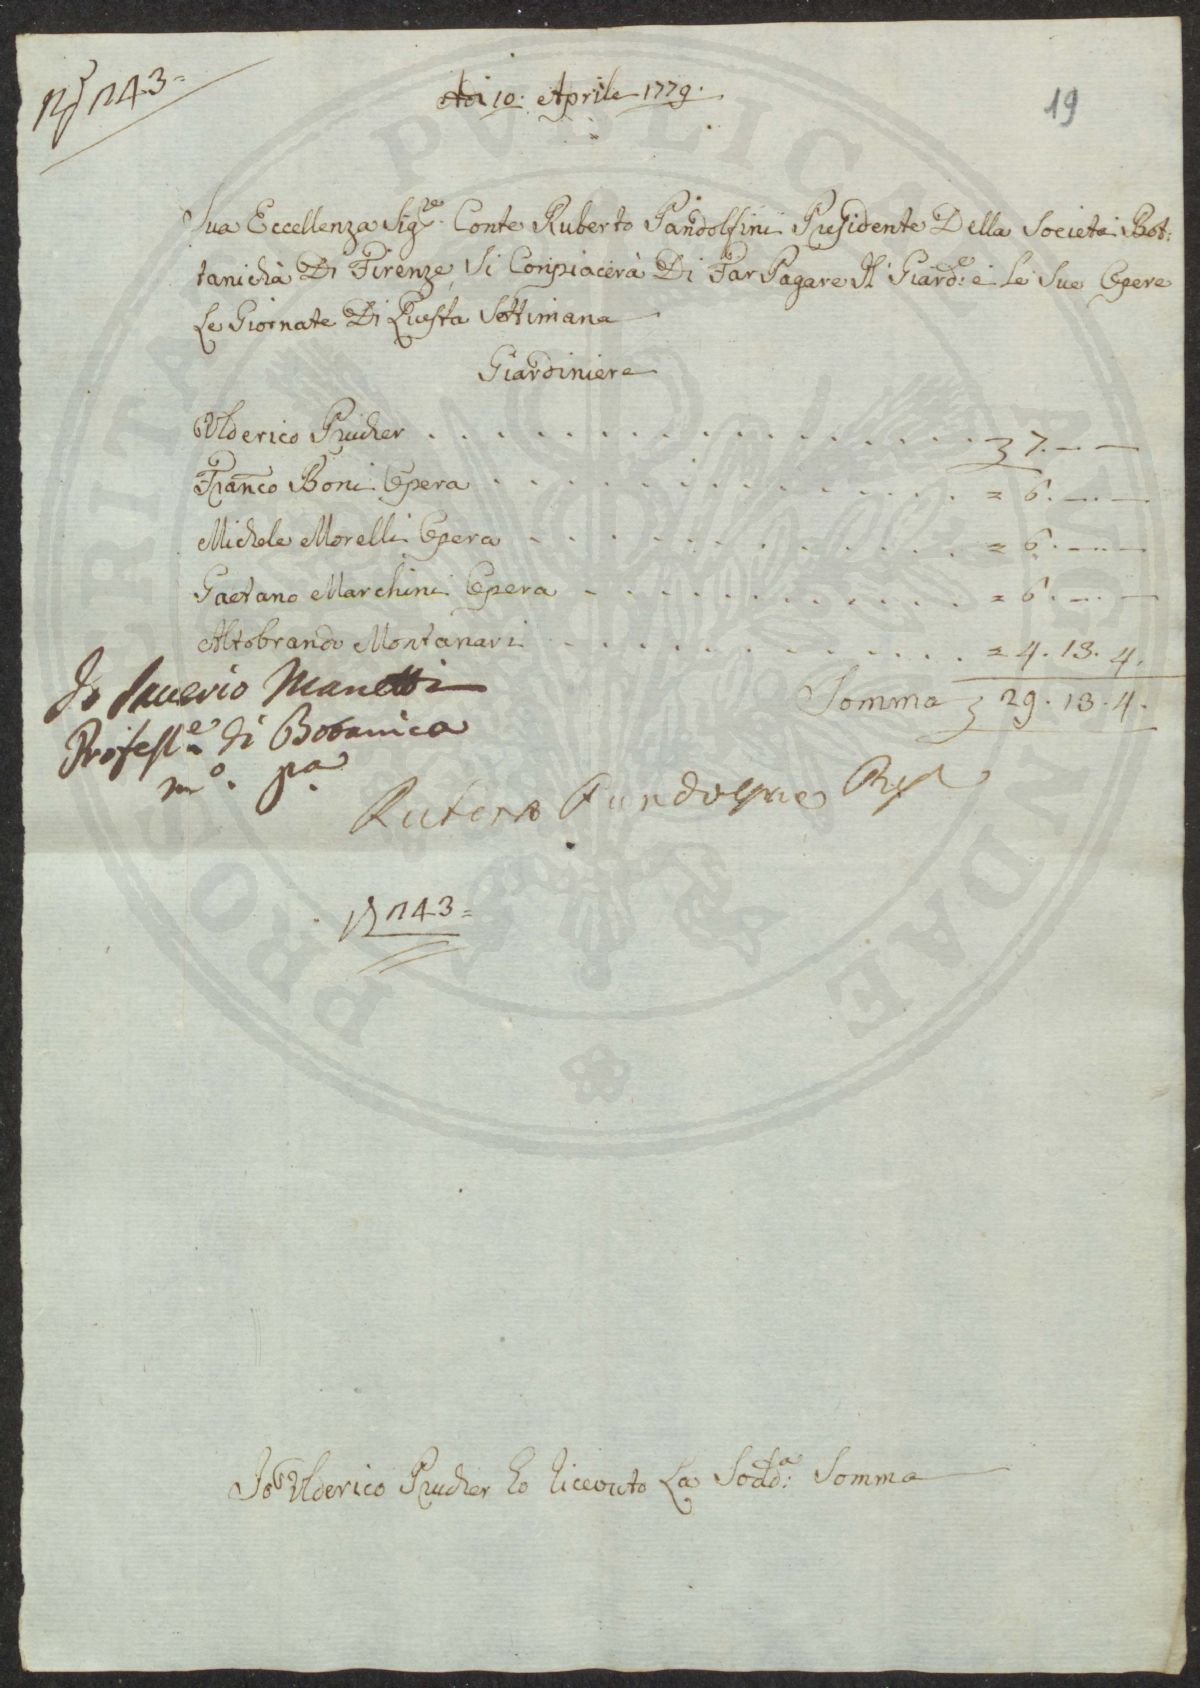 Nº 1743=
Adi 10. Aprile 1779.
19
Sua Eccellenza Sigre. Conte Ruberto Pandolfini Presidente Della Societa Bot:
tanicha Di Firenze, Si Conpiacerà Di Far Pagare Il Giarde: e Le Sue Opere
Le Giornate Di Questa Settimana
Giardiniere
Ulderico Prucher . . . . . . . . . . . . . . . . . . . 7. — —
Franco Boni Opera . . . . . . . . . . . . . . . . . = 6. — —
Michele Morelli Opera . . . . . . . . . . . . . . = 6. — —
Gaetano Marchini Opera . . . . . . . . . . . . = 6. — —
Altobrando Montanari . . . . . . . . . . . . . = 4. 13. 4.
Somma 29. 13. 4.
Io Saverio Manetti
Professe. di Botanica
mo. pa.
Ruberto Pandolfini
Nº 1743=
Io Ulderico Prucher ho riceuto La Sodda: Somma
PROSPERITATI PUBLICAE AUGENDAE